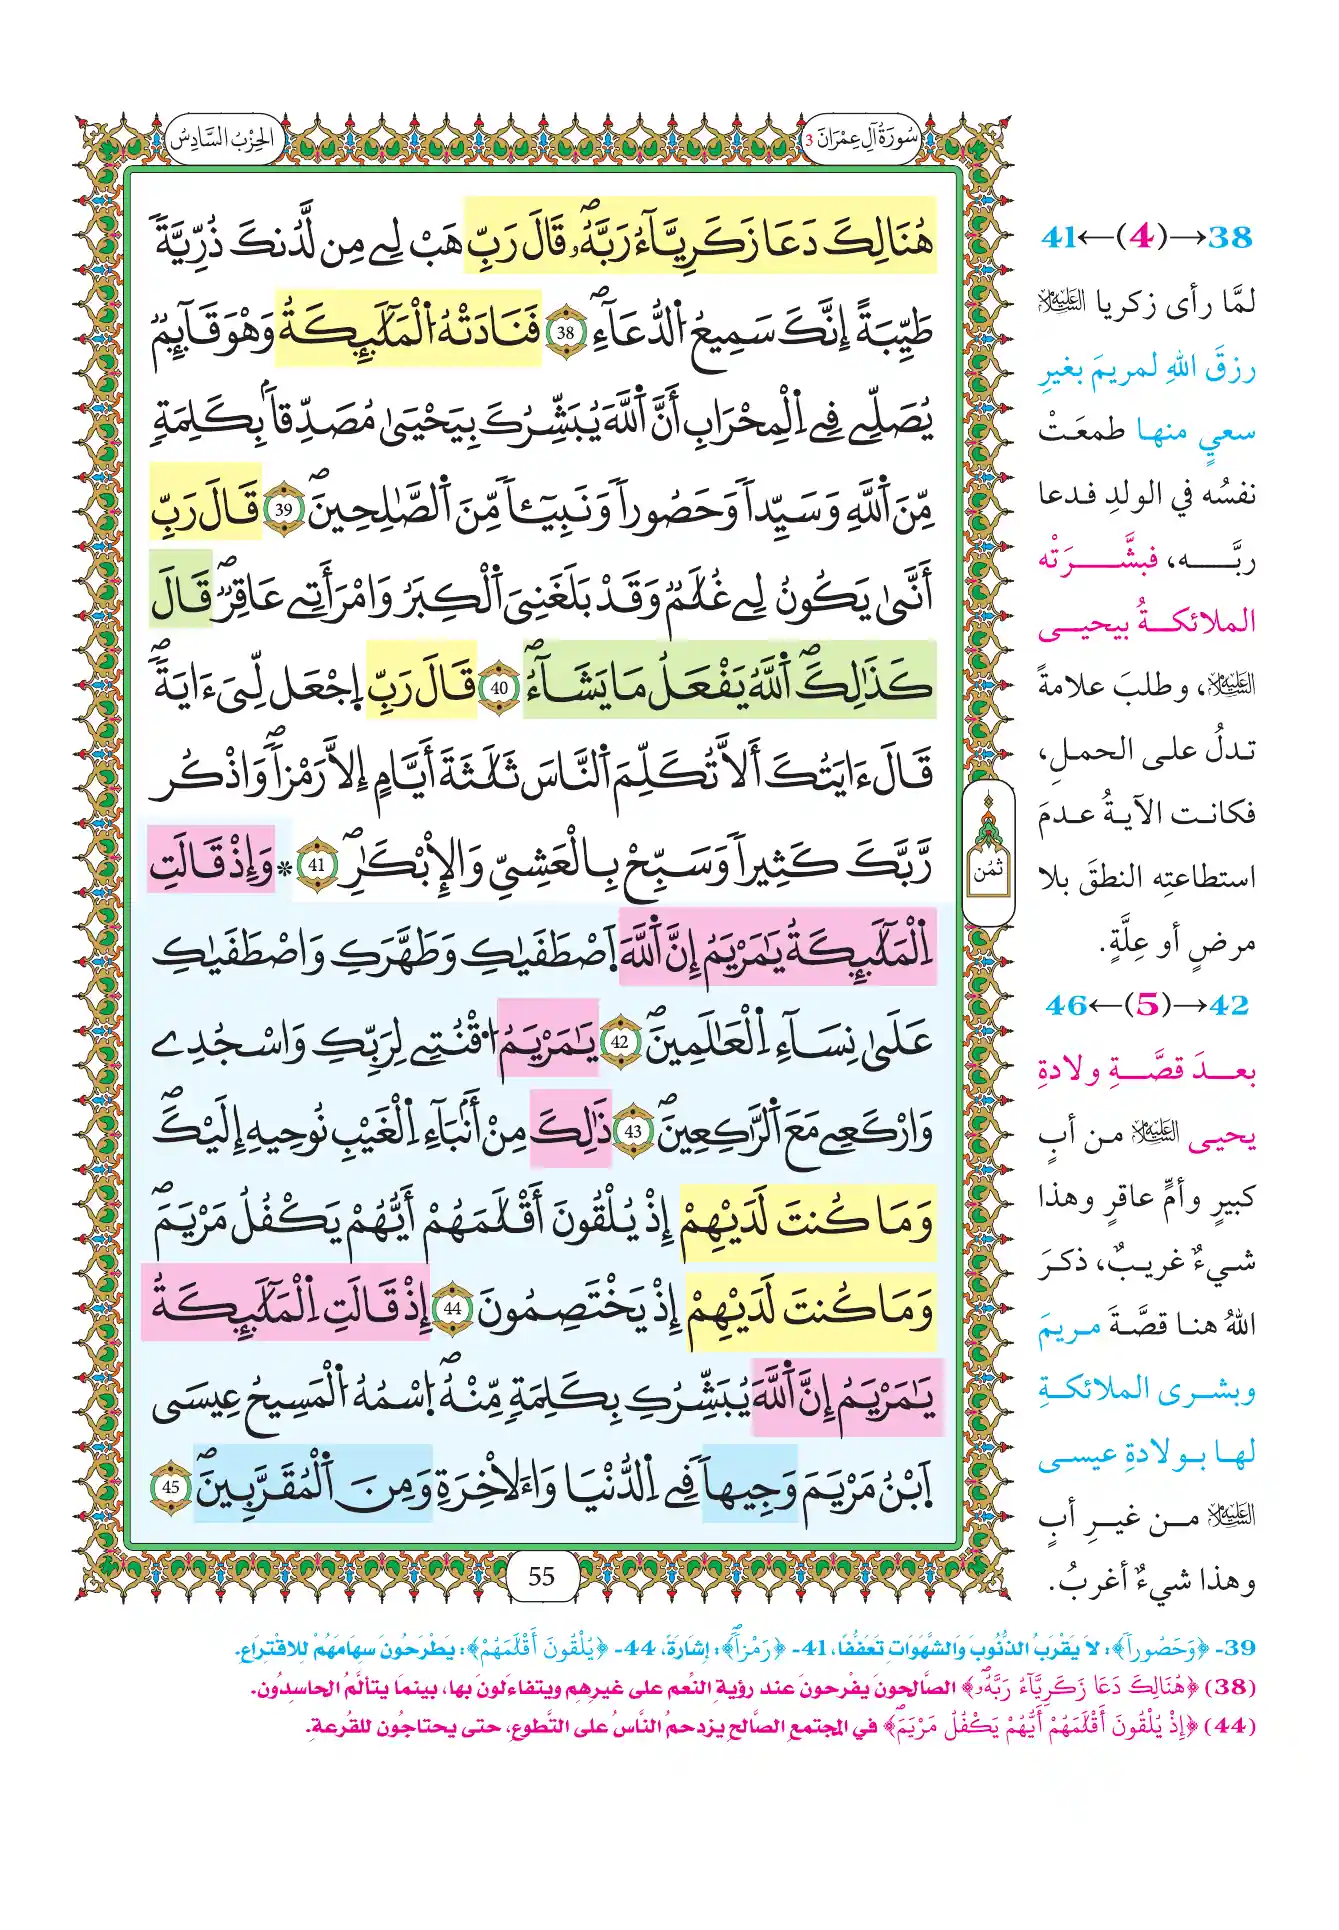 سُورَةُ آلِ عِمْرَانَ 3
الحِزْبُ السَّادِسُ
هُنَالِكَ دَعَا زَكَرِيَّآءُ رَبَّهُۥ قَالَ رَبِّ هَبْ لِے مِن لَّدُنكَ ذُرِّيَّةٗ
طَيِّبَةً إِنَّكَ سَمِيعُ اُ۬لدُّعَآءِ 38 فَنَادَتْهُ اُ۬لْمَلَٰٓئِكَةُ وَهْوَ قَآئِمٞ
يُصَلِّے فِے اِ۬لْمِحْرَابِ أَنَّ اَ۬للَّهَ يُبَشِّرُكَ بِيَحْيَىٰ مُصَدِّقاَۢ بِكَلِمَةٖ
مِّنَ اَ۬للَّهِ وَسَيِّداٗ وَحَصُوراٗ وَنَبِيٓـٔاٗ مِّنَ اَ۬لصَّٰلِحِينَ 39 قَالَ رَبِّ
أَنَّىٰ يَكُونُ لِے غُلَٰمٞ وَقَدْ بَلَغَنِيَ اَ۬لْكِبَرُ وَامْرَأَتِے عَاقِرٞ قَالَ
كَذَٰلِكَ اَ۬للَّهُ يَفْعَلُ مَا يَشَآءُ 40 قَالَ رَبِّ اِ۪جْعَل لِّيَ ءَايَةٗ
قَالَ ءَايَتُكَ أَلَّا تُكَلِّمَ اَ۬لنَّاسَ ثَلَٰثَةَ أَيَّامٍ إِلَّا رَمْزاٗ وَاذْكُر
رَّبَّكَ كَثِيراٗ وَسَبِّحْ بِالْعَشِيِّ وَالِابْكَٰرِ 41 * وَإِذْ قَالَتِ
اِ۬لْمَلَٰٓئِكَةُ يَٰمَرْيَمُ إِنَّ اَ۬للَّهَ اَ۪صْطَفَيٰكِ وَطَهَّرَكِ وَاصْطَفَيٰكِ
عَلَىٰ نِسَآءِ اِ۬لْعَٰلَمِينَ 42 يَٰمَرْيَمُ اُ۟قْنُتِے لِرَبِّكِ وَاسْجُدِے
وَارْكَعِے مَعَ اَ۬لرَّٰكِعِينَ 43 ذَٰلِكَ مِنْ أَنۢبَآءِ اِ۬لْغَيْبِ نُوحِيهِ إِلَيْكَ
وَمَا كُنتَ لَدَيْهِمْ إِذْ يُلْقُونَ أَقْلَٰمَهُمْ أَيُّهُمْ يَكْفُلُ مَرْيَمَ
وَمَا كُنتَ لَدَيْهِمْ إِذْ يَخْتَصِمُونَ 44 إِذْ قَالَتِ اِ۬لْمَلَٰٓئِكَةُ
يَٰمَرْيَمُ إِنَّ اَ۬للَّهَ يُبَشِّرُكِ بِكَلِمَةٖ مِّنْهُ اُ۪سْمُهُ اُ۬لْمَسِيحُ عِيسَى
اَ۪بْنُ مَرْيَمَ وَجِيهاٗ فِے اِ۬لدُّنْيَا وَالَاخِرَةِ وَمِنَ اَ۬لْمُقَرَّبِينَ 45
ثُمُن
55
38→(4)←41
لمَّا رأى زكريا عليه السلام
رزقَ اللهِ لمريمَ بغيرِ
سعيٍ منها طمعَتْ
نفسُه في الولدِ فدعا
ربَّه، فبشَّرَتْه
الملائكةُ بيحيى
عليه السلام، وطلبَ علامةً
تدلُ على الحملِ،
فكانت الآيةُ عدمَ
استطاعتِه النطقَ بلا
مرضٍ أو عِلَّةٍ.
42→(5)←46
بعدَ قصَّةِ ولادةِ
يحيى عليه السلام من أبٍ
كبيرٍ وأمٍّ عاقرٍ وهذا
شيءٌ غريبٌ، ذكرَ
اللهُ هنا قصَّةَ مريمَ
وبشرى الملائكةِ
لها بولادةِ عيسى
عليه السلام من غيرِ أبٍ
وهذا شيءٌ أغربُ.
39- ﴿وَحَصُوراٗ﴾: لاَ يَقْرَبُ الذُّنُوبَ وَالشَّهَوَاتِ تَعَفُّفًا، 41- ﴿رَمْزاٗ﴾: إِشَارَةً، 44- ﴿يُلْقُونَ أَقْلَٰمَهُمْ﴾: يَطْرَحُونَ سِهَامَهُمْ لِلِاقْتِرَاعِ.
(38) ﴿هُنَالِكَ دَعَا زَكَرِيَّآءُ رَبَّهُۥ﴾ الصَّالحونَ يفْرحونَ عند رؤيةِ النِّعم على غيرِهم ويتفاءلونَ بها، بينمَا يتألَّمُ الحاسِدُون.
(44) ﴿إِذْ يُلْقُونَ أَقْلَٰمَهُمْ أَيُّهُمْ يَكْفُلُ مَرْيَمَ﴾ في المجتمعِ الصَّالحِ يزدحمُ النَّاسُ على التَّطوعِ، حتى يحتاجُون للقُرعةِ.